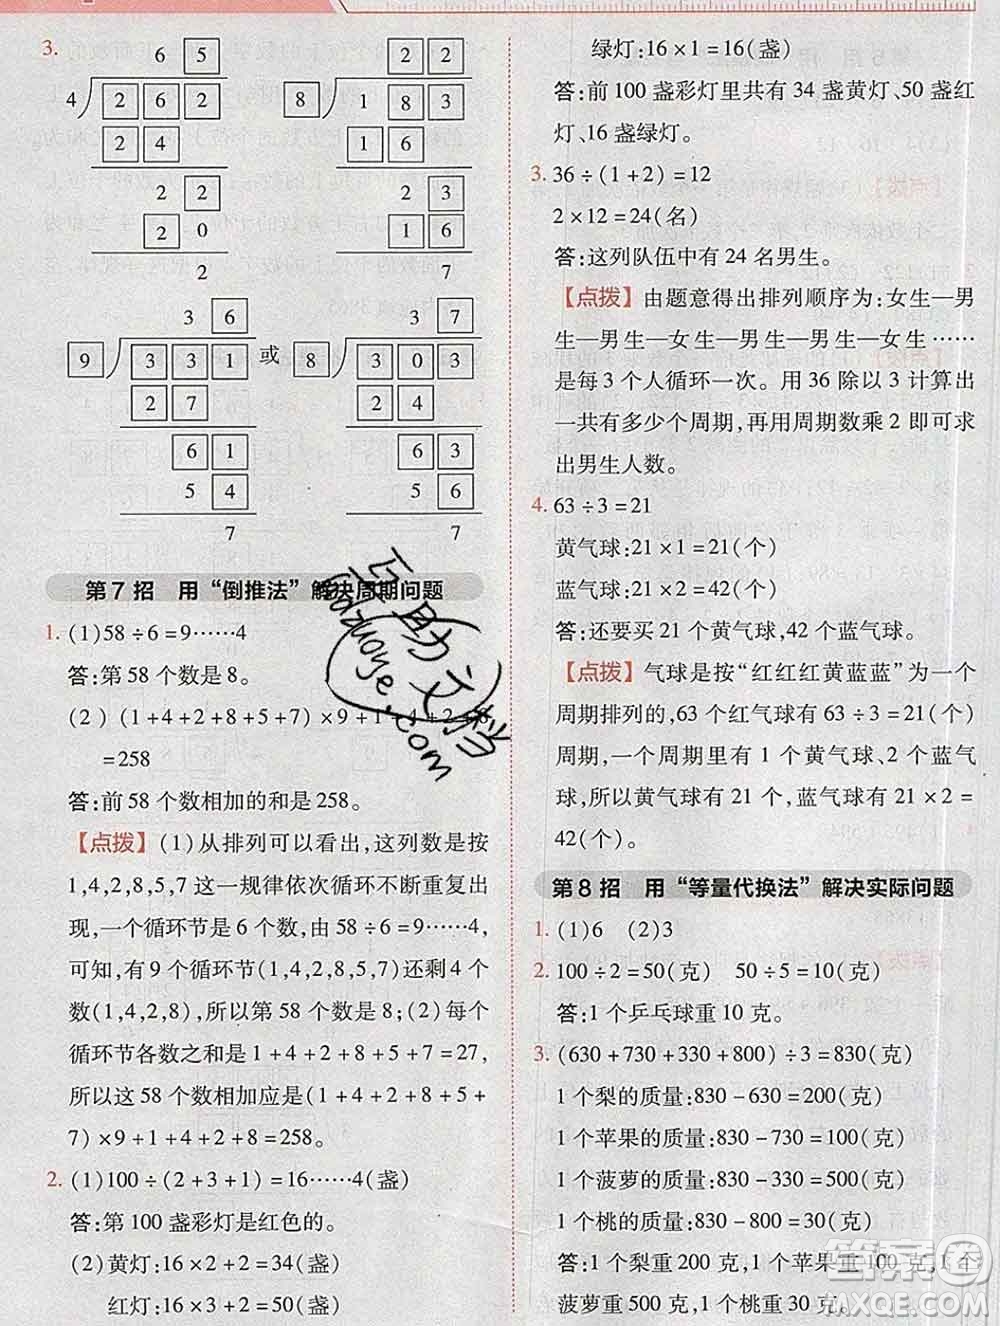 3.
6 5
4 2 6 2
2 4
2 2
2 0
2
2 2
8 1 8 3
1 6
2 3
1 6
7
3 6
9 3 3 1
2 7
6 1
5 4
7
或
3 7
8 3 0 3
2 4
6 3
5 6
7
第7招 用“倒推法”解决周期问题
1. (1)58÷6=9……4
答:第58个数是8。
(2) (1+4+2+8+5+7)×9+1+4+2+8
=258
答:前58个数相加的和是258。
【点拨】(1)从排列可以看出,这列数是按
1,4,2,8,5,7这一规律依次循环不断重复出
现,一个循环节有6个数,由58÷6=9……4,
可知,有9个循环节(1,4,2,8,5,7)还剩4个
数(1,4,2,8),所以第58个数是8;(2)每个
循环节各数之和是1+4+2+8+5+7=27,
所以58个数相加应是(1+4+2+8+5+
7)×9+1+4+2+8=258。
2. (1)100÷(2+3+1)=16……4(盏)
答:第100盏彩灯是红色的。
(2)黄灯:16×2+2=34(盏)
红灯:16×3+2=50(盏)
绿灯:16×1=16(盏)
答:前100盏彩灯里共有34盏黄灯、50盏红
灯、16盏绿灯。
3. 36÷(1+2)=12
2×12=24(名)
答:这列队伍中有24名男生。
【点拨】由题意得出排列顺序为:女生—男
生—男生—女生—男生—男生—女生……
是每3个人循环一次。用36除以3计算出
一共有多少个周期,再用周期数乘2即可求
出男生人数。
4. 63÷3=21
黄气球:21×1=21(个)
蓝气球:21×2=42(个)
答:还要买21个黄气球,42个蓝气球。
【点拨】气球是按“红红红黄蓝蓝”为一个
周期排列的,63个红气球有63÷3=21(个)
周期,一个周期里有1个黄气球、2个蓝气
球,所以黄气球有21个,蓝气球有21×2=
42(个)。
第8招 用“等量代换法”解决实际问题
1. (1)6 (2)3
2. 100÷2=50(克) 50÷5=10(克)
答:1个乒乓球重10克。
3. (630+730+330+800)÷3=830(克)
1个梨的质量:830-630=200(克)
1个苹果的质量:830-730=100(克)
1个菠萝的质量:830-330=500(克)
1个桃的质量:830-800=30(克)
答:1个梨重200克,1个苹果重100克,1个
菠萝重500克,1个桃重30克。
答案圈
MXQE.COM